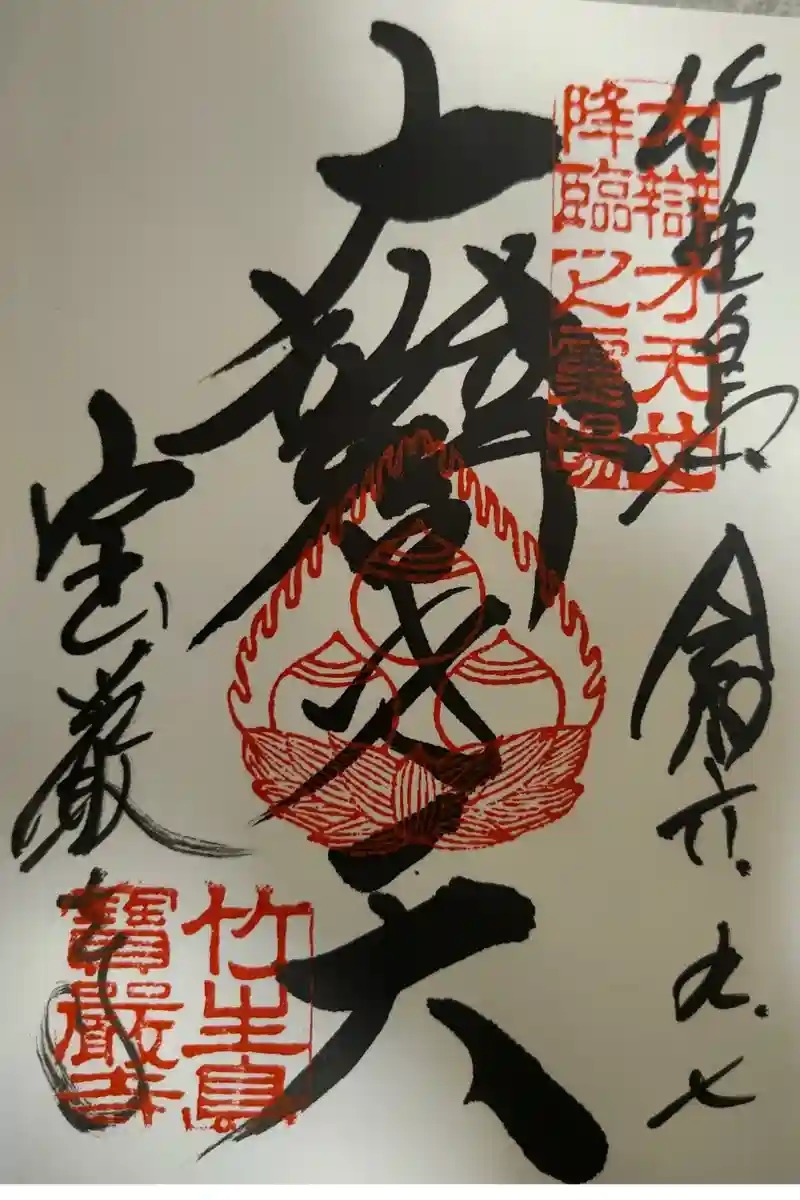 竹生島 令和六.九.七
大辯才天女
降臨之靈場
大辯才天
宝厳寺
竹生島
寶嚴寺